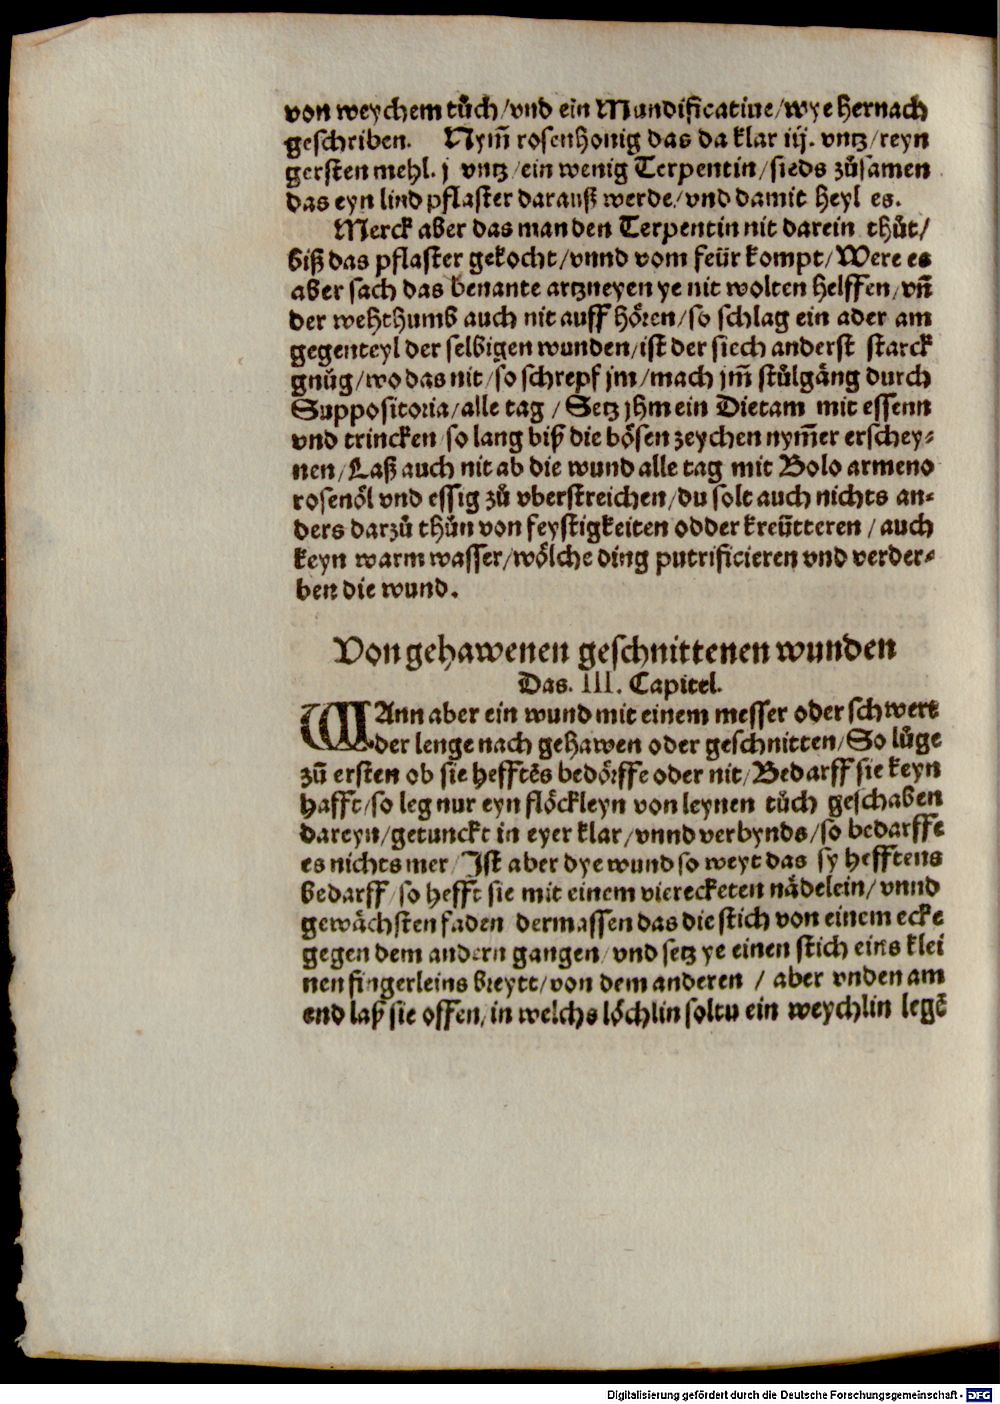 von weychem tůch/vnd ein Mundificatiue/wye hernach
geschriben. Nym̃ rosenhonig das da klar iij. vntz/reyn
gersten mehl. j vntz/ein wenig Terpentin/sieds zůsamen
das eyn lind pflaster darauß werde/vnd damit heyl es.
Merck aber das man den Terpentin nit darein thůt/
biß das pflaster gekocht/vnnd vom feür kompt/Were es
aber sach das benante artzneyen ye nit wolten helffen/vñ
der wehthumb auch nit auff hören/so schlag ein ader am
gegenteyl der selbigen wunden/ist der siech anderst starck
gnůg/wo das nit/so schrepf jm/mach jm̃ stůlgäng durch
Suppositoria/alle tag/Setz jhm ein Dietam mit essenn
vnd trincken/so lang biß die bösen zeychen nym̃er erschey⸗
nen/Laß auch nit ab die wund alle tag mit Bolo armeno
rosenöl vnd essig zů vberstreichen/du solt auch nichts an⸗
ders darzů thůn von feystigkeiten odder kreütteren/auch
keyn warm wasser/wölche ding putrificieren vnd verder⸗
ben die wund.
Von gehawenen geschnittenen wunden
Das. III. Capitel.
WAnn aber ein wund mit einem messer oder schwert
der lenge nach gehawen oder geschnitten/So lůge
zů ersten ob sie hefftēs bedörffe oder nit/Bedarff sie keyn
hafft/so leg nur eyn flöckleyn von leynen tůch geschaben
dareyn/getunckt in eyer klar/vnnd verbynds/so bedarffe
es nichts mer/Ist aber dye wund so weyt das sy hefftens
bedarff/so hefft sie mit einem vierecketen nädelein/vnnd
gewächsten faden dermassen das die stich von einem ecke
gegen dem andern gangen/vnd setz ye einen stich eins klei
nen fingerleins breytt/von dem anderen/aber vnden am
end laß sie offen/in welchs löchlin soltu ein weychlin legē
Digitalisierung gefördert durch die Deutsche Forschungsgemeinschaft - DFG